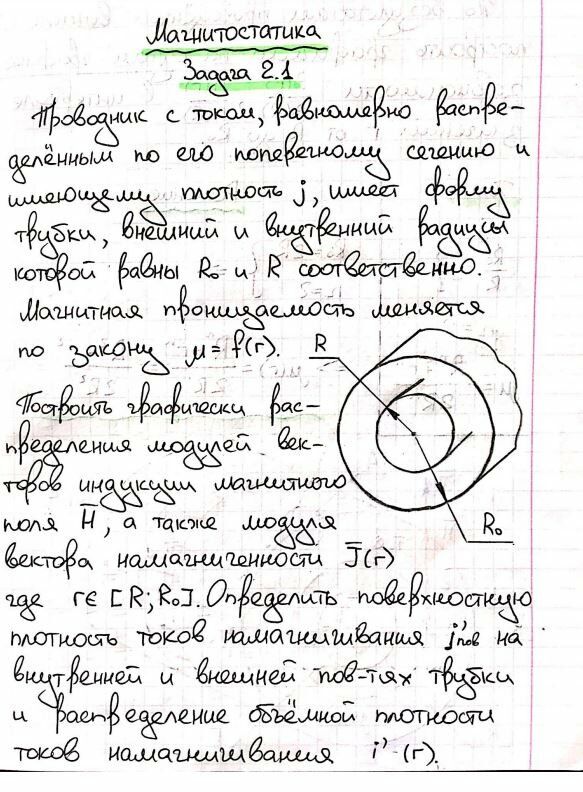 Магнитостатика
Задача 2.1
Проводник с током, равномерно распре-
делённым по его поперечному сечению и
имеющему плотность j, имеет форму
трубки, внешний и внутренний радиусы
которой равны R₀ и R соответственно.
Магнитная проницаемость меняется
по закону μ = f(r).
R
Построить графически рас-
пределения модулей век-
торов индукции магнитного
поля H̅, а также модуля
R₀
вектора намагниченности J̅(r)
где r∈[R;R₀]. Определить поверхностную
плотность токов намагничивания j'пов на
внутренней и внешней пов-тях трубки
и распределение объёмной плотности
токов намагничивания i'(r).